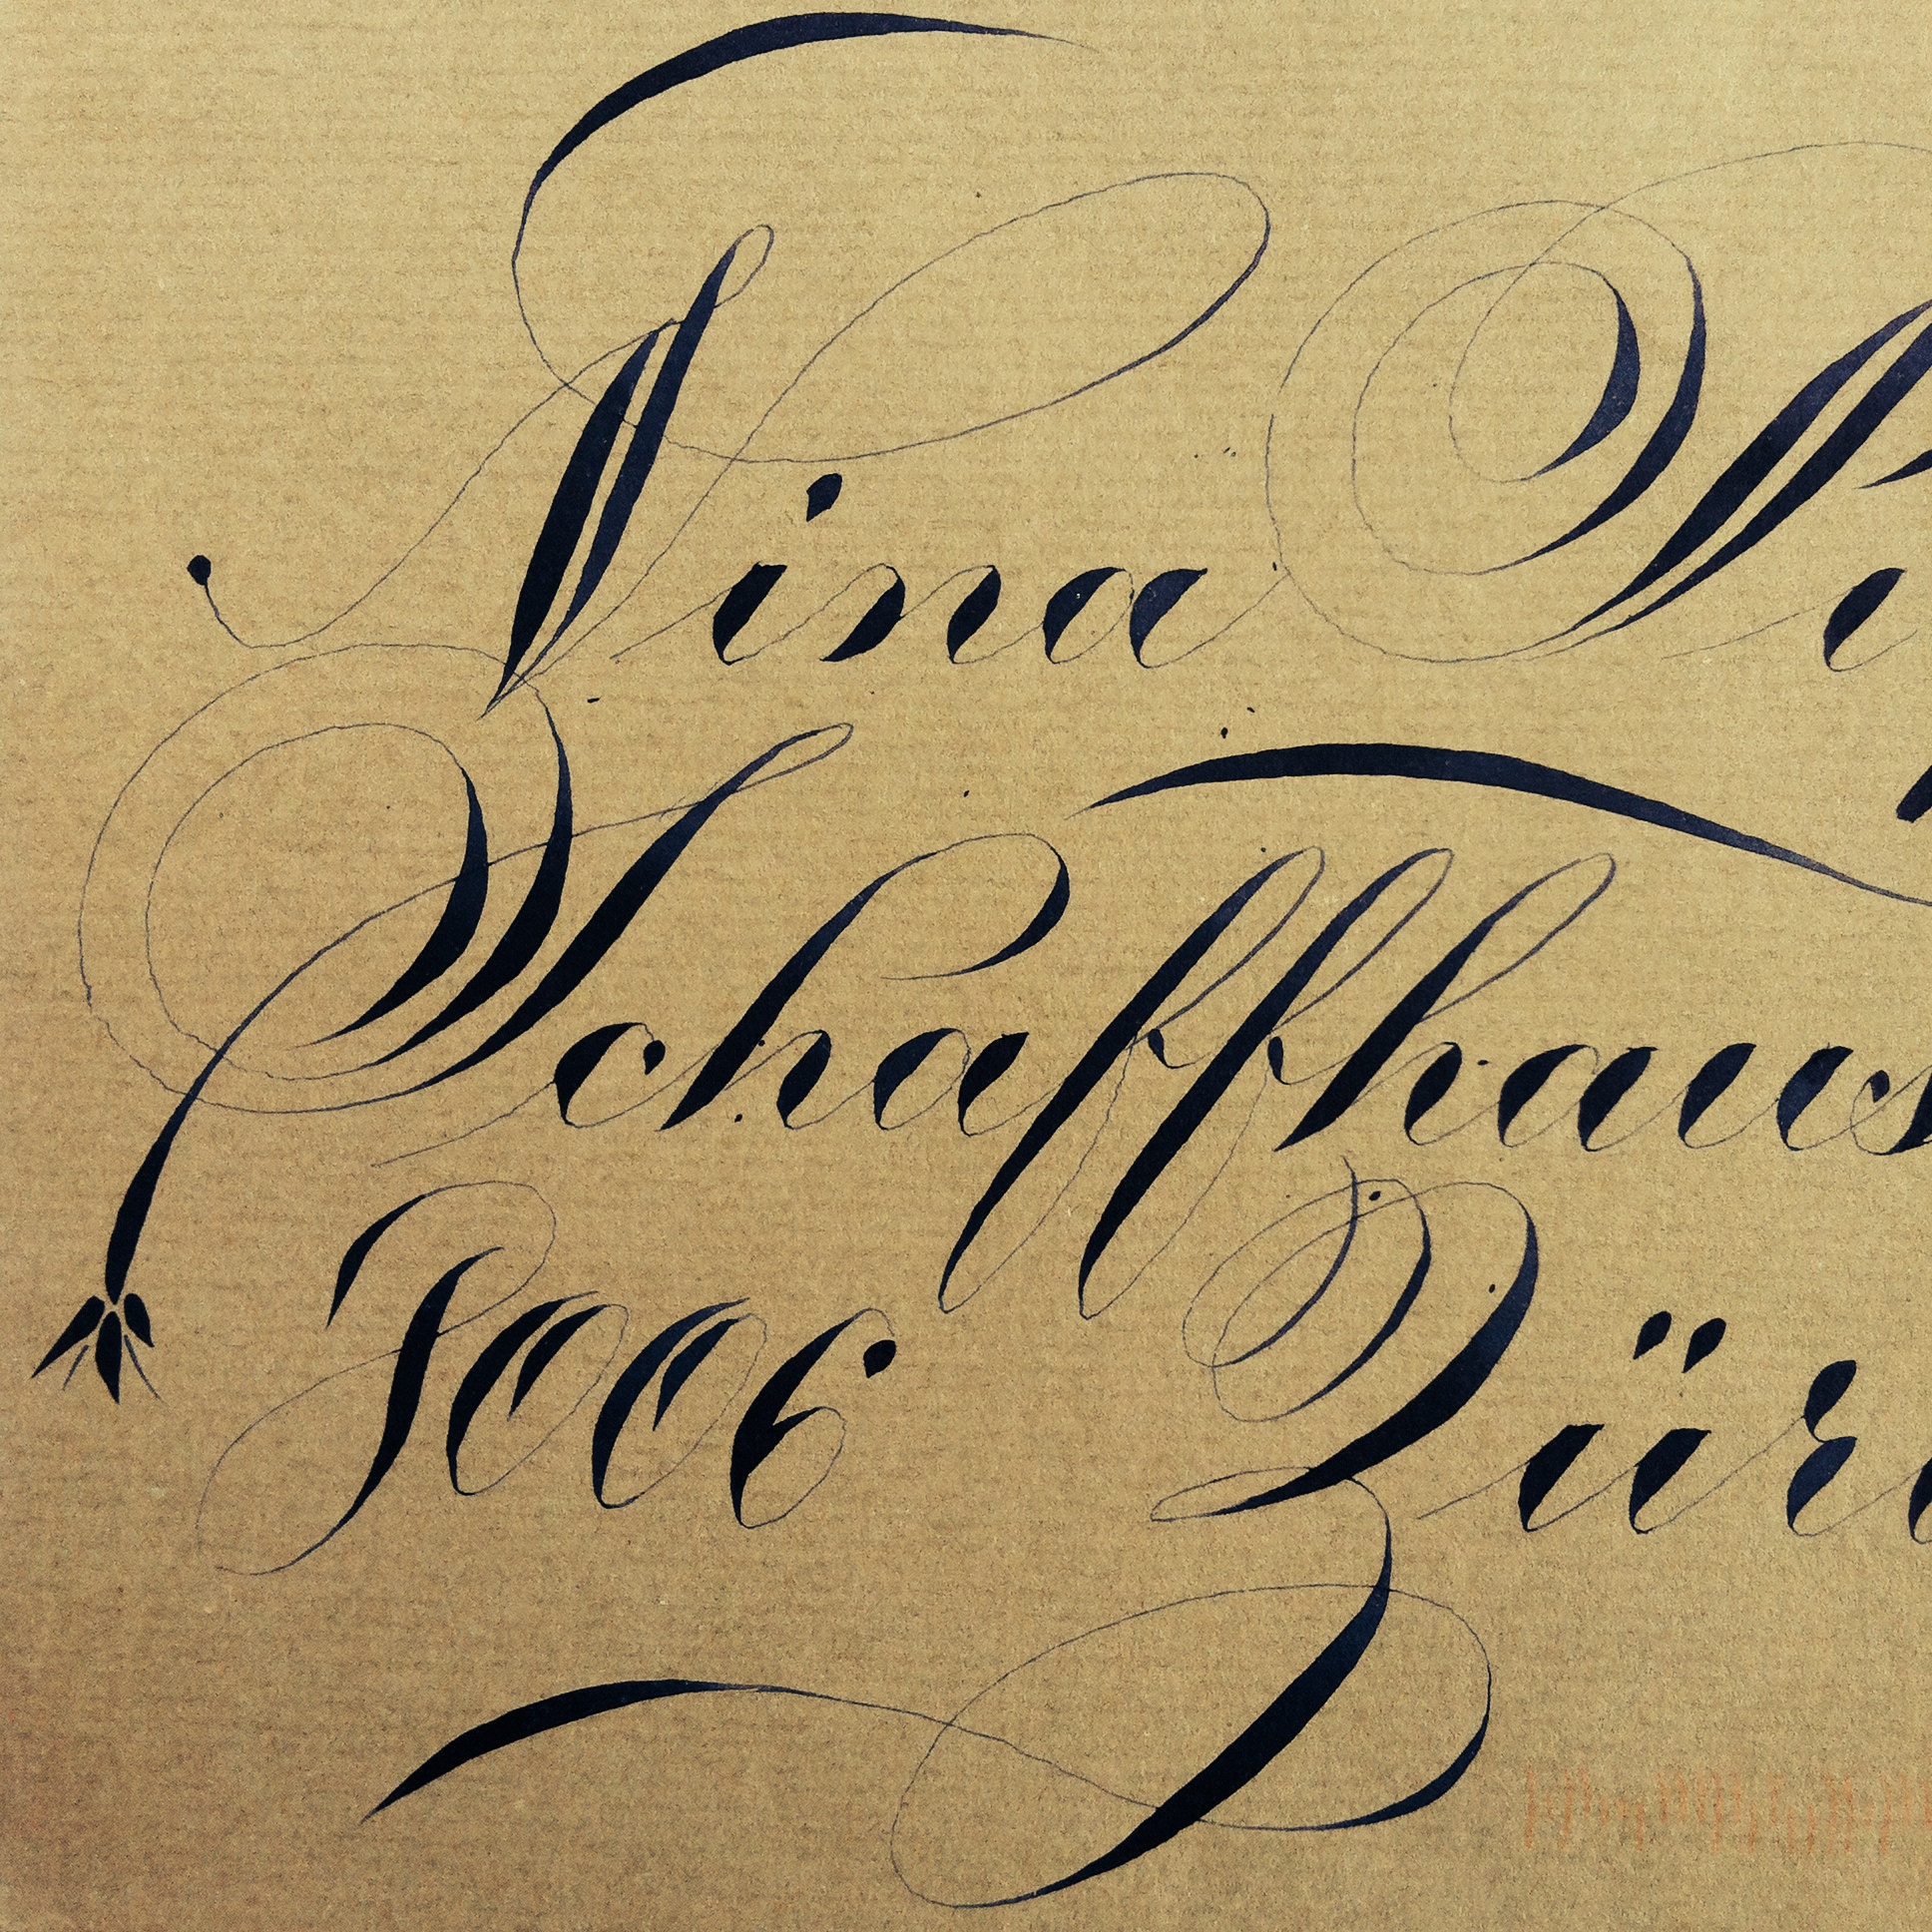 Nina Vi
Schaffhaus
8006 Zür